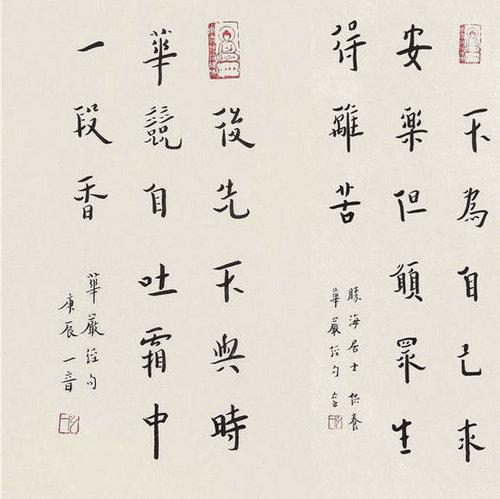 不為自己求
安樂但願眾生
得離苦
勝海居士供養
華嚴經句
後先不與時
華競自吐霜中
一段香
華嚴經句
庚辰一音